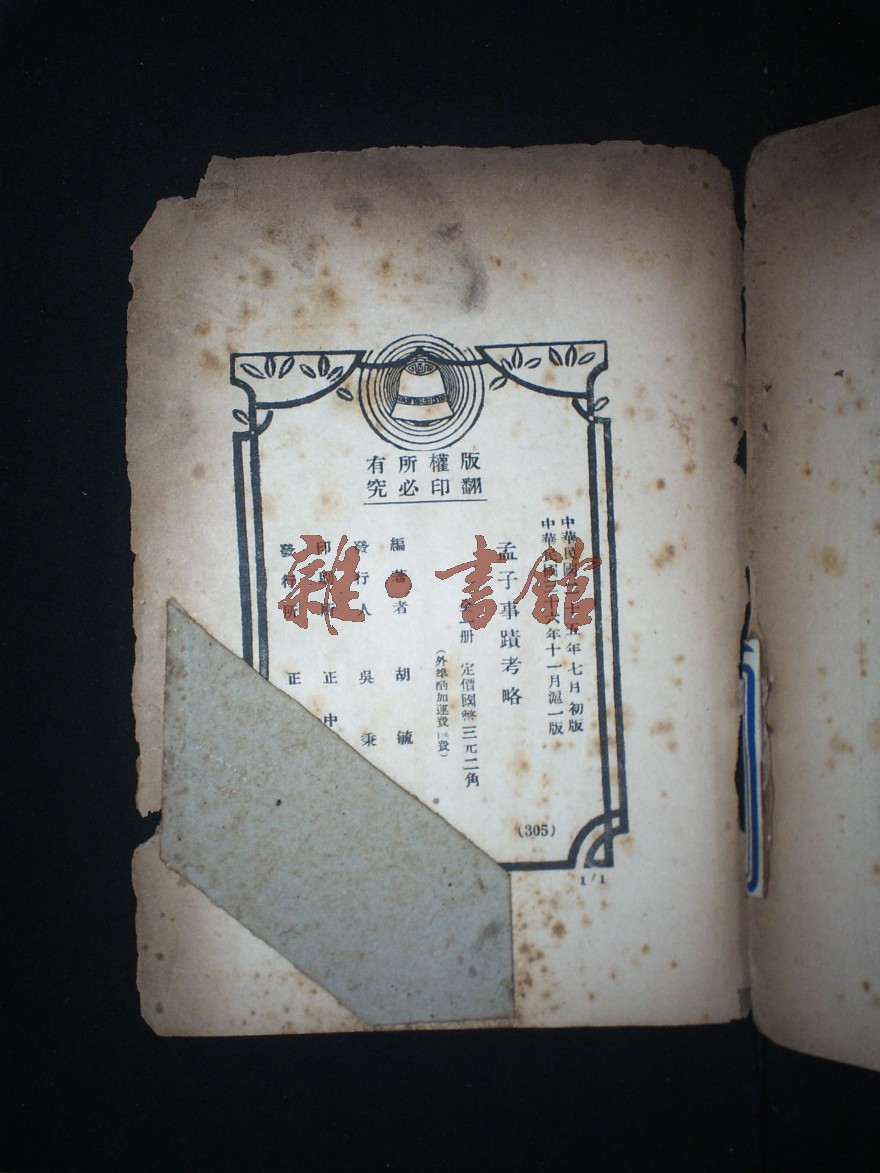 版權所有
翻印必究
中華民國二十五年七月初版
中華民國三十六年十一月滬一版
孟子事蹟考略
全一册 定價國幣三元二角
(外埠酌加運費 費)
編著者 胡毓
發行人 吳秉
印刷所 正中
發行所 正
(305)
1/1
雜·書館